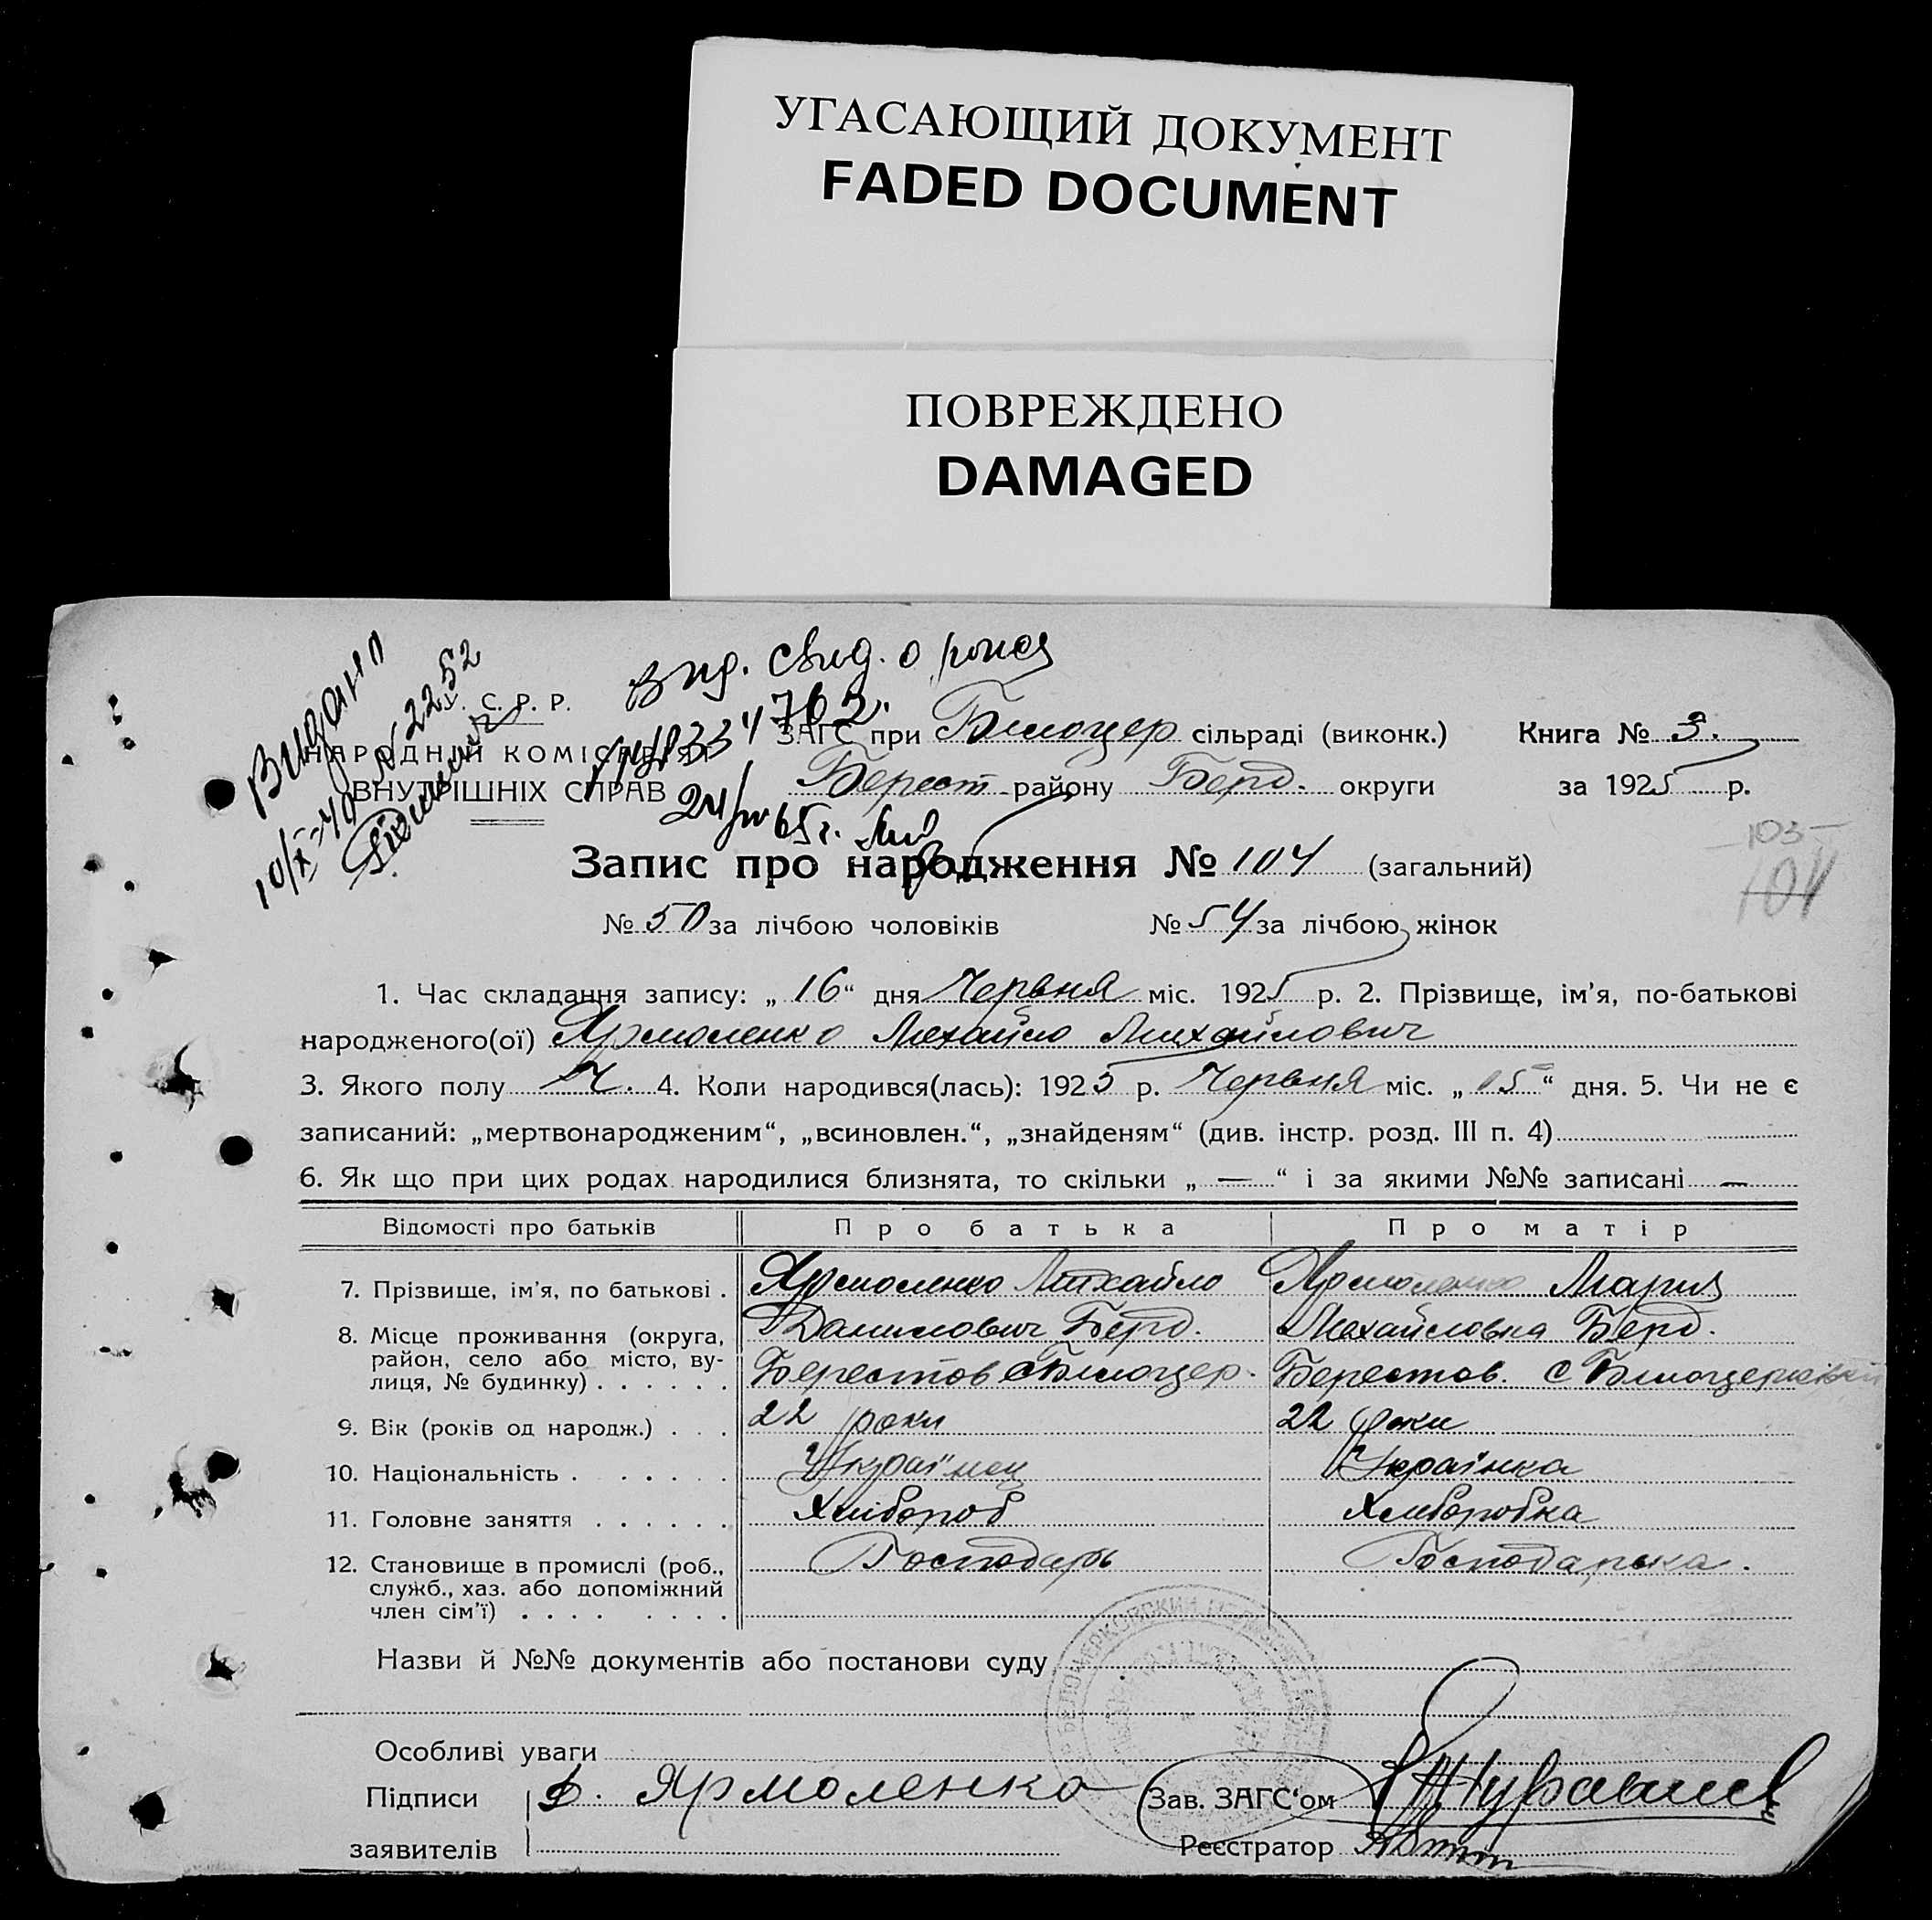 УГАСАЮЩИЙ ДОКУМЕНТ
FADED DOCUMENT
ПОВРЕЖДЕНО
DAMAGED
Видано
10/X-40 N 2252
Вид. свид. о рожд
702.
У. С. Р. Р.
НАРОДНІЙ КОМІСАРІЯТ
ВНУТРІШНІХ СПРАВ
ЗАГС при Білоцер сільраді (виконк.) Книга № 3.
Берест району Берд. округи за 1925 р.
Запис про народження № 104 (загальний)
103
104
№ 50 за лічбою чоловіків № 54 за лічбою жінок
1. Час складання запису: „ 16 “ дня Червня міс. 1925 р. 2. Прізвище, ім’я, по-батькові
народженого(ої) Ярмоленко Михайло Михайлович
3. Якого полу Ч. 4. Коли народився(лась): 1925 р. Червня міс. „ 15 “ дня. 5. Чи не є
записаний: „мертвонародженим“, „всиновлен.“, „знайденям“ (див. інстр. розд. III п. 4)
6. Як що при цих родах народилися близнята, то скільки „ — “ і за якими №№ записані —
Відомості про батьків Про батька Про матір
7. Прізвище, ім’я, по батькові . Ярмоленко Михайло Ярмоленко Мария
8. Місце проживання (округа, Данилович Берд. Михайловна Берд.
район, село або місто, ву-
лиця, № будинку) . . . . . . Берестов с Білоцер. Берестов. с Білоцерківки
9. Вік (років од народж.) . . . 22 роки 22 роки
10. Національність . . . . . . Українец Українка
11. Головне заняття . . . . . . Хлібороб Хліборобка
12. Становище в промислі (роб., Господарь Господарька.
служб., хаз. або допоміжний
член сім’ї) . . . . . . . .
Назви й №№ документів або постанови суду
Особливі уваги
Підписи Ярмоленко Зав. ЗАГС‘ом
заявителів Реєстратор